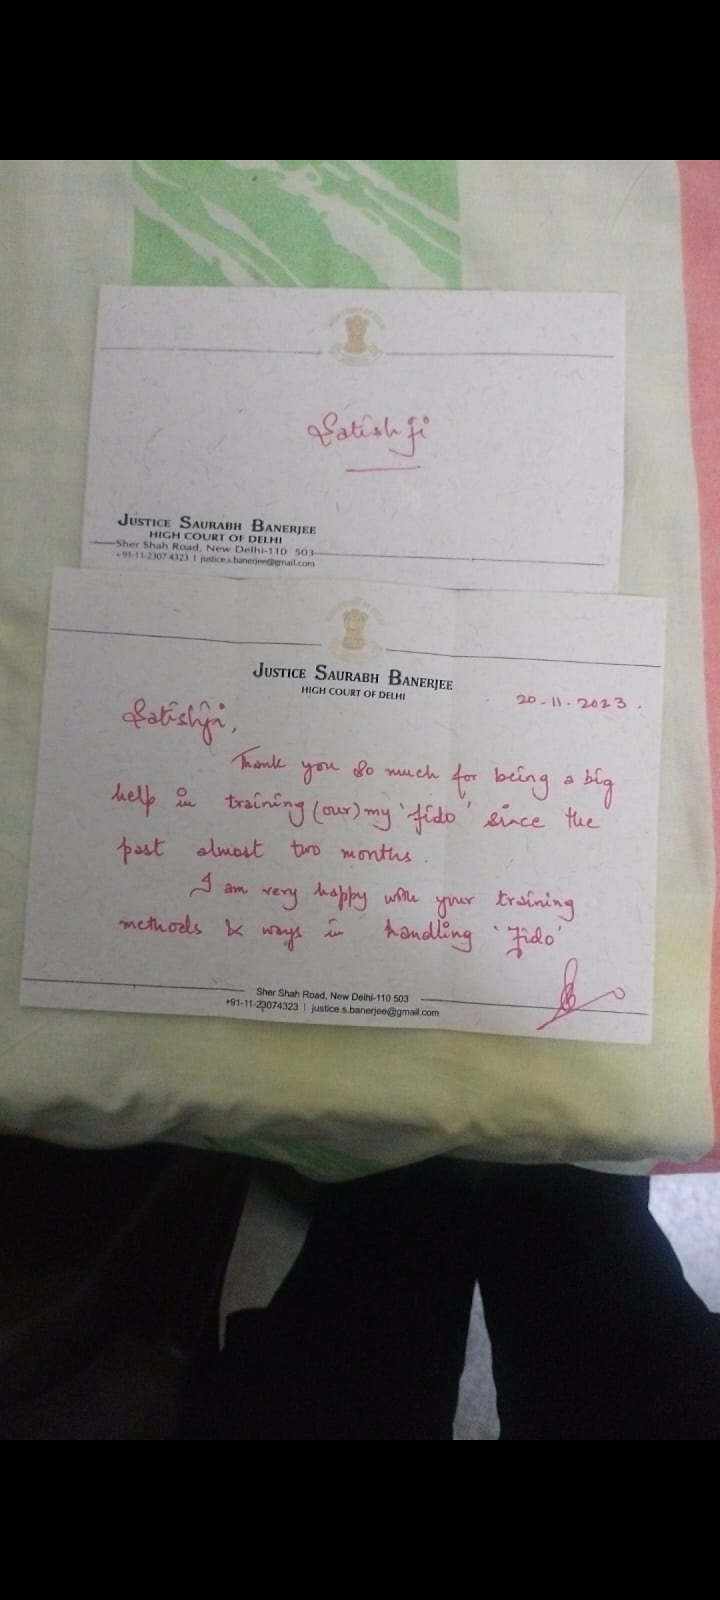 Satishji
JUSTICE SAURABH BANERJEE
HIGH COURT OF DELHI
Sher Shah Road, New Delhi-110 503
+91-11-2307 4323 | justice.s.banerjee@gmail.com
JUSTICE SAURABH BANERJEE
HIGH COURT OF DELHI
20-11-2023.
Satishji,
Thank you so much for being a big
help in training (our) my 'fido' since the
past almost two months.
I am very happy with your training
methods & ways in handling 'Fido'
Sher Shah Road, New Delhi-110 503
+91-11-23074323 | justice.s.banerjee@gmail.com